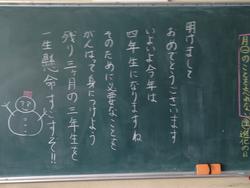 明けまして
おめでとうございます
いよいよ今年は
四年生になりますね
そのために必要なことを
がんばって身につけよう
残り三ヶ月の三年生を
一生懸命すごそう!!